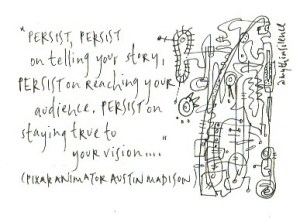 "PERSIST, PERSIST
on telling your story,
PERSIST on reaching your
audience. PERSIST on
staying true to
your vision...."
(PIXAR ANIMATOR AUSTIN MADISON)
anythinsilence